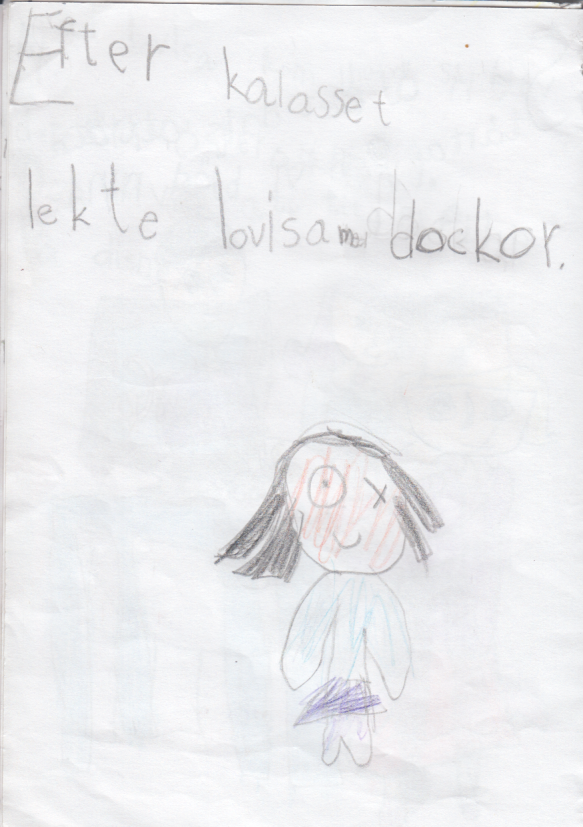 Efter kalasset
lekte lovisa med dockor.